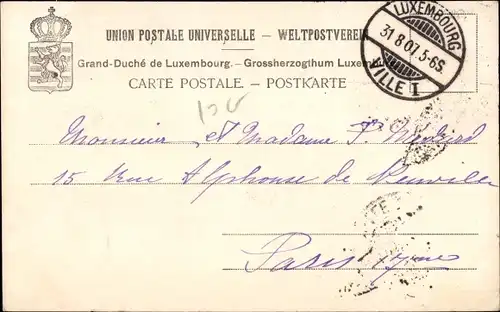 UNION POSTALE UNIVERSELLE — WELTPOSTVEREIN
Grand-Duché de Luxembourg. – Grossherzogthum Luxemburg
CARTE POSTALE – POSTKARTE
LUXEMBOURG
31.8.07.5-6S.
VILLE I
Monsieur et Madame P.
15 Rue Alphonse de Neuville
Paris 17me